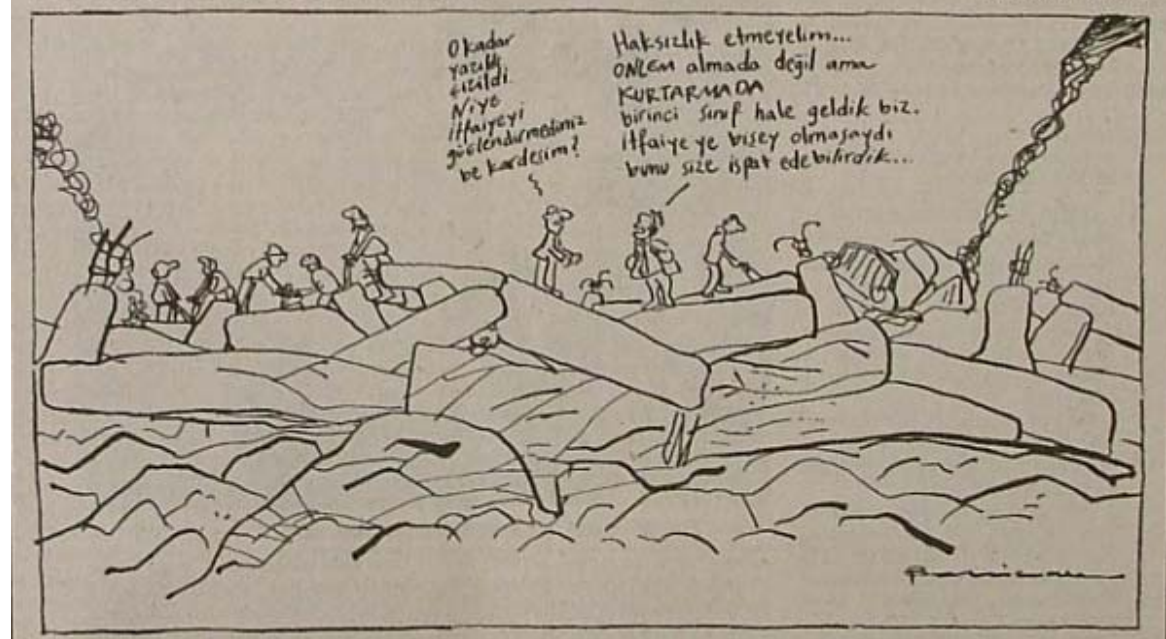 O kadar
yazıldı,
çizildi.
Niye
itfaiyeyi
güçlendirmediniz
be kardeşim?
Haksızlık etmeyelim...
ÖNLEM almada değil ama
KURTARMADA
birinci sınıf hale geldik biz.
itfaiye ye bişey olmasaydı
bunu size ispat edebilirdik...